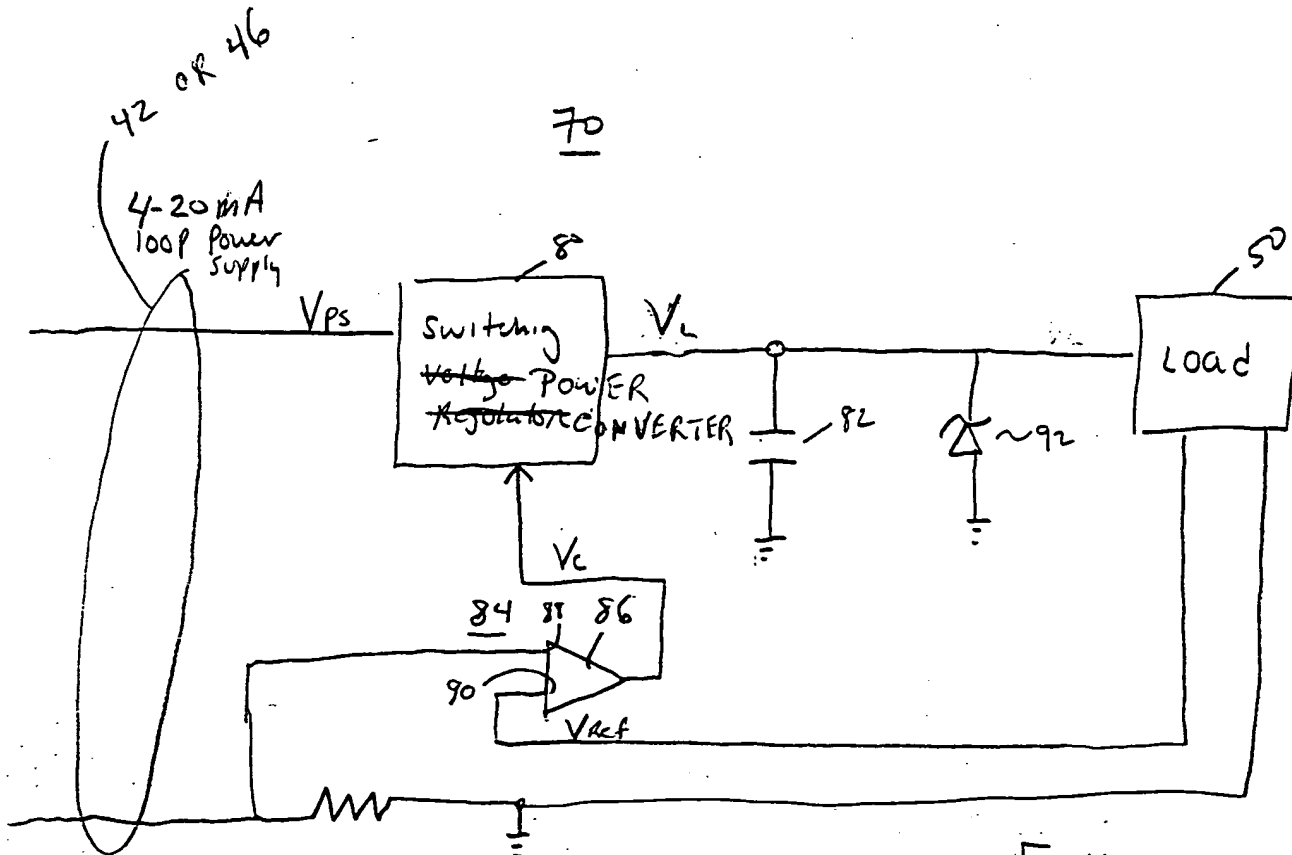 42 OR 46
70
4-20 mA
loop Power
Supply
8
50
Vps
Switching
Voltage POWER
Regulator CONVERTER
VL
82
~92
Load
Vc
84 88 86
90
VRef